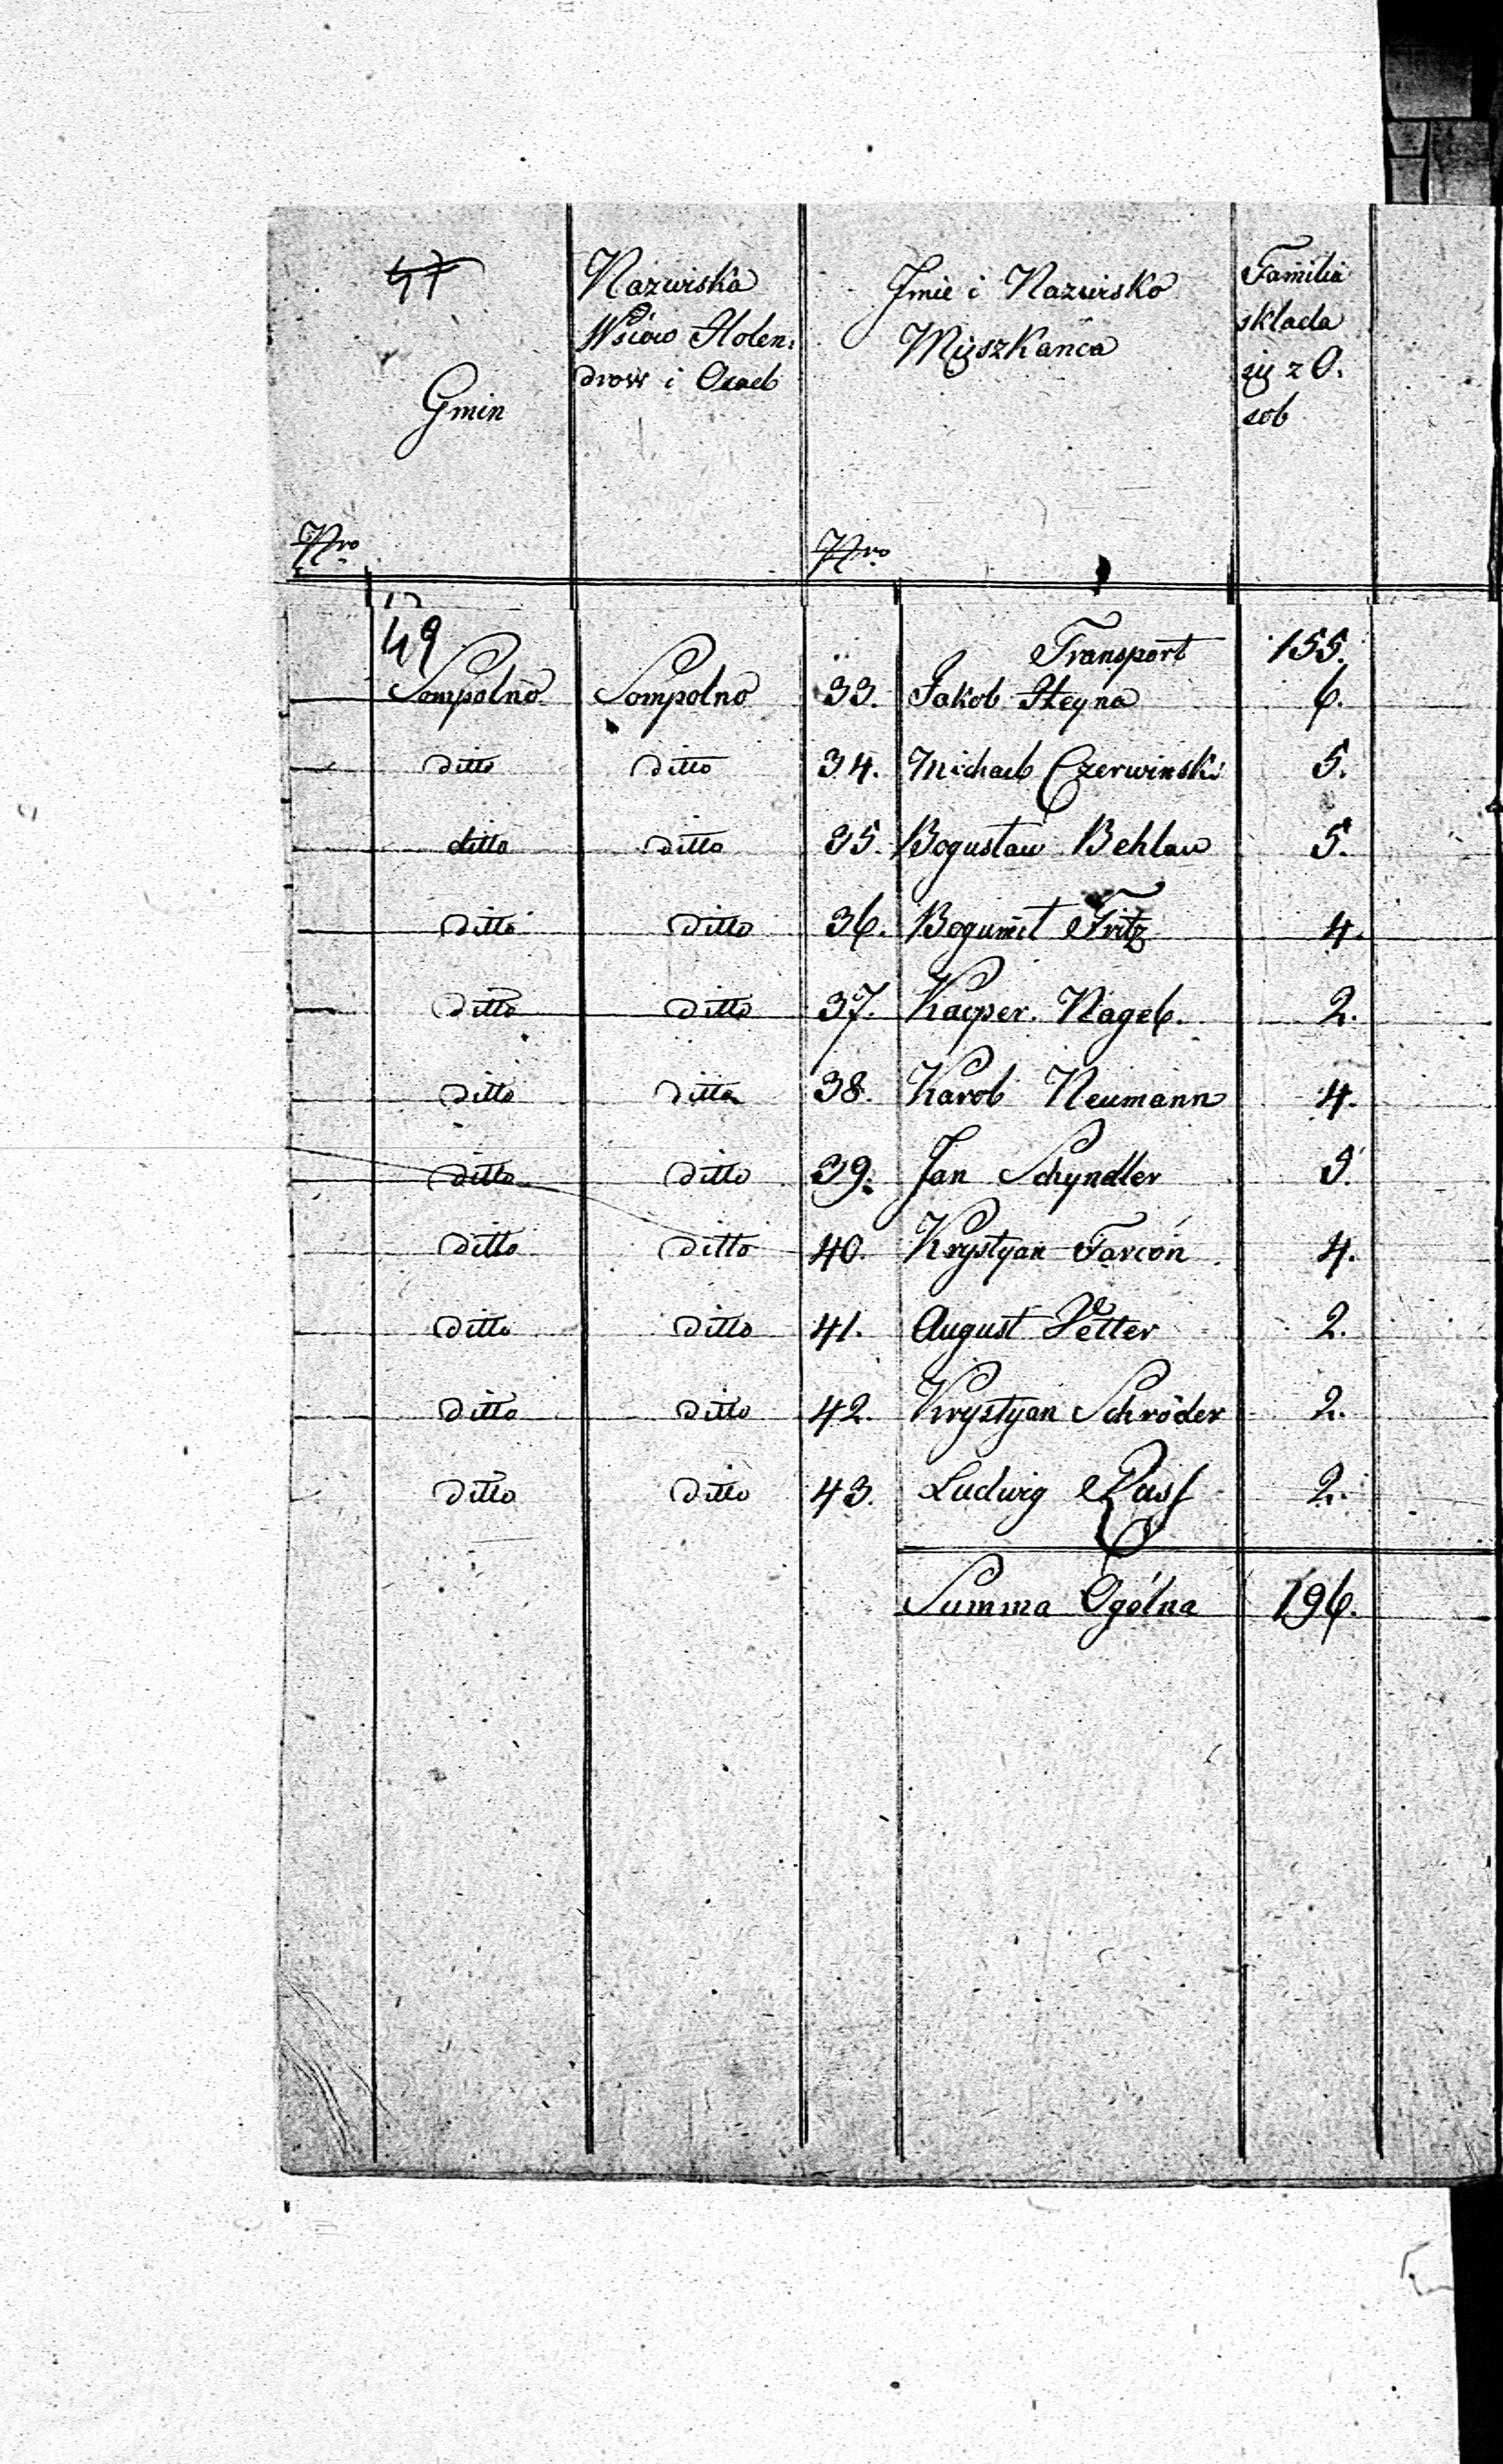 47
Gmin
Nro
Nazwiska
Wsiów Holen,
drow i Osad
Jmie i Nazwisko
Mięszkańca
Nro
Familia
składa
się z O.
sob
49
Transport 155.
Sompolno Sompolno 33. Jakob Heyna 6.
ditto ditto 34. Michael Czerwinski 5.
ditto ditto 35. Bogusław Behlau 5.
ditto ditto 36. Bogumił Fritz 4.
ditto ditto 37. Kacper. Nagel. 2.
ditto ditto 38. Karol Neumann 4.
ditto ditto 39. Jan Schyndler 5.
ditto ditto 40. Krystyan Farcón 4.
ditto ditto 41. August Vetter 2.
ditto ditto 42. Krystyan Schröder 2.
ditto ditto 43. Ludwig 2.
Summa Ogólna 196.